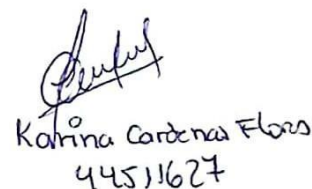 Karina Cardenas Flores
44511627